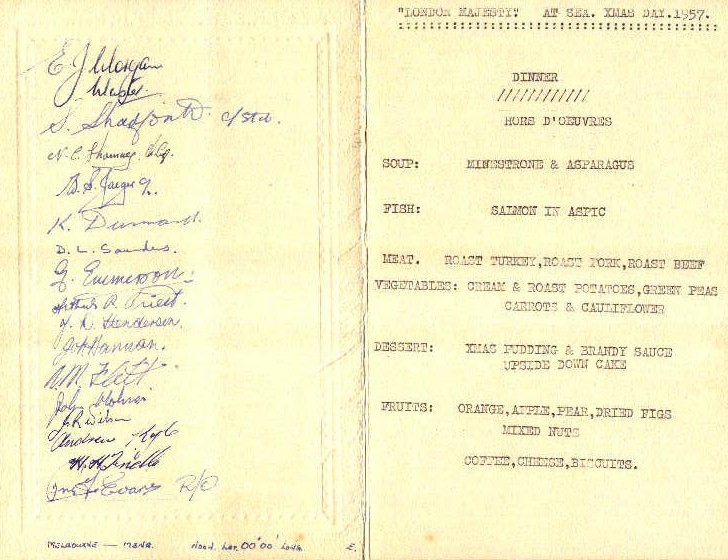 E. J. Morgan
S. Shadforth c/std.
K. Dumard.
D. L. Saunders.
G. Emmerson.
Arthur R. Priest.
J. D. Henderson.
J. Hannan.
Andrew
Evans R/O
MELBOURNE — Noon. Lat. 00°00' Long. E.
"LONDON MAJESTY" AT SEA. XMAS DAY.1957.
DINNER
////////////
HORS D'OEUVRES
SOUP: MINESTRONE & ASPARAGUS
FISH: SALMON IN ASPIC
MEAT. ROAST TURKEY,ROAST PORK,ROAST BEEF
VEGETABLES: CREAM & ROAST POTATOES,GREEN PEAS
CARROTS & CAULIFLOWER
DESSERT: XMAS PUDDING & BRANDY SAUCE
UPSIDE DOWN CAKE
FRUITS: ORANGE,APPLE,PEAR,DRIED FIGS
MIXED NUTS
COFFEE,CHEESE,BISCUITS.